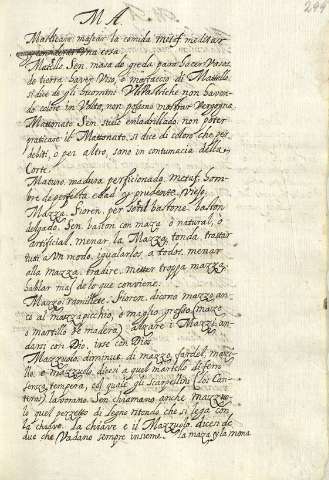 MA
299
Masticare, mascar la comida, metaf. meditar
una cosa.
Matillo Sen. masa de greda para hacer Vasos
de tierra, haver Viso, o mostaccio di Matillo
si dice de gli huomini che non haven
do colore in Volto, non possano mostrar Vergogna.
Mattonato Sen. suelo enladrillado, non poter
praticare il Mattonato, si dice di coloro che per
debiti, o per altro, sono in contumacia della
Corte.
Maturo, madura, perficionado, metaf. hom-
bre de perfeta edad, y prudente, Viejo.
Mazza, Fioren. per sottil bastone, baston
delgado, Sen. baston con maza o natural, o
artificial, menar la Mazza tonda, trattar
tutti a Un modo, igualarlos a todos, menar
alla mazza, tradire, metter troppa mazza,
hablar mas de lo que conviene.
Mazzo, ramillete, Fioren. dicono mazzo an
co al mazzapicchio, o maglio grosso (mazo
o martillo de madera) alzare i Mazzi, an
darsi con Dio, irse con Dios.
Mazzuolo, diminut. di mazzo, fardel, mazi-
llo, e mazzuolo, dicesi a quel martello di ferro
senza tempera, col quale gli scarpellini (los Can
teros) lavorano. Sen. chiamano anche mazzuo
lo quel pezzetto di legno ritondo che si lega con
la chiave. La chiave e il Mazzuolo, dicesi de
due che Vadano sempre insieme. la maza y la mona